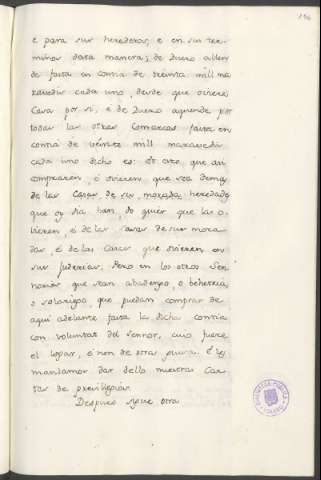 196
e para sus herederos, e en sus ter-
minos desta manera; de Duero allen
de fasta en contia de treinta mill ma
ravedis cada uno, desde que oviere
Casa por si, e de Duero aquende por
todas las otras Comarcas fasta en
contia de veinte mill maravedis
cada uno dicho es: et esto que an-
compraren, ó ovieren que sea demas
de las Casas de su morada heredado
que oy dia han, do quier que las o-
vieren, é de las Casas de sus mora
das, é de las Casas que ovieren en
sus juderias. Pero en los otros Sen-
norios que sean abadengo, o behetria,
o solariego, que puedan comprar de
aqui adelante fasta la dicha contia
con voluntat del sennor, cuio fuere
el logar, é non de otra guisa. E les
mandamos dar dello nuestras Car-
tas de previllegios.
Despues sigue otra